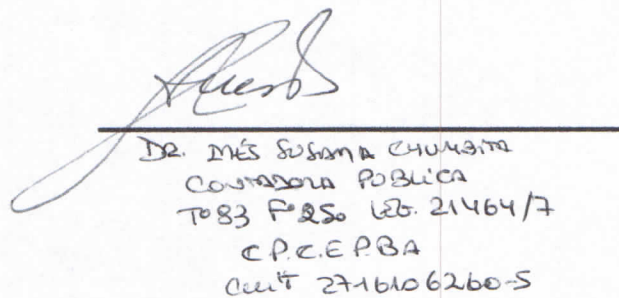 DR. INÉS SUSANA CHUMBITA
CONTADORA PÚBLICA
Tº 83 Fº 250 LEG. 21464/7
C.P.C.E.P.BA
CUIT 27-16106260-5